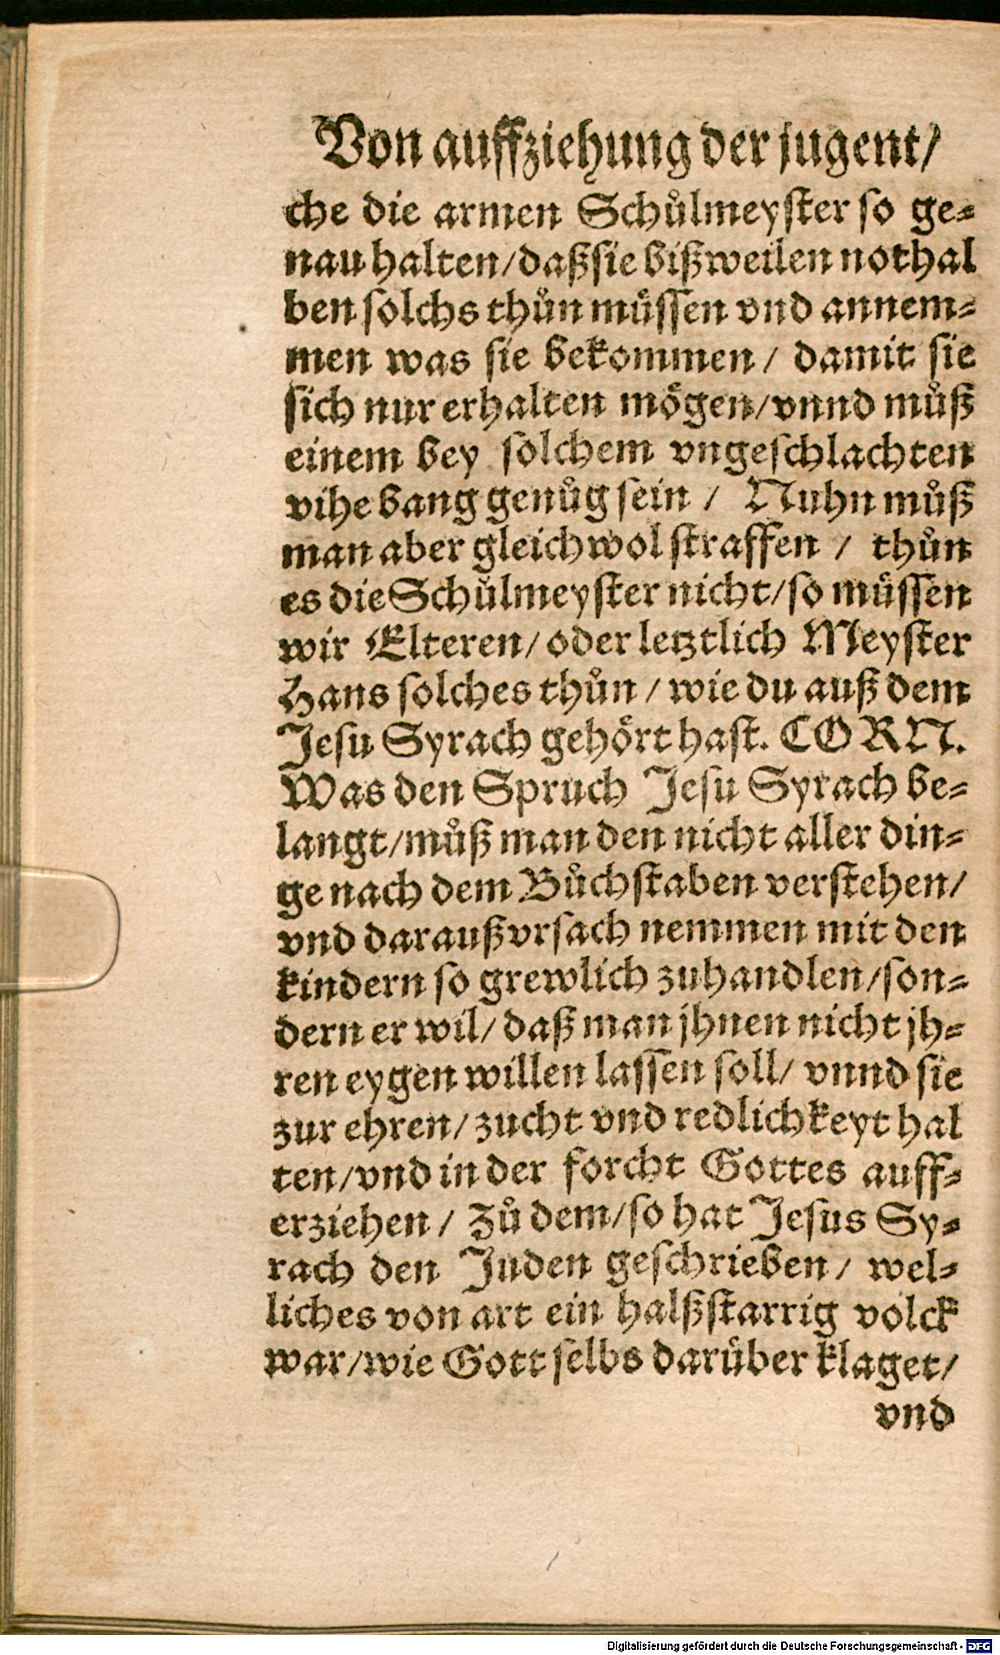 Von auffziehung der jugent/
che die armen Schůlmeyster so ge⸗
nau halten/daß sie bißweilen nothal
ben solchs thůn müssen vnd annem⸗
men was sie bekommen/ damit sie
sich nur erhalten mögen/vnnd můß
einem bey solchem vngeschlachten
vihe bang genůg sein / Nuhn můß
man aber gleichwol straffen / thůn
es die Schůlmeyster nicht/so müssen
wir Elteren/oder letztlich Meyster
Hans solches thůn / wie du auß dem
Jesu Syrach gehört hast. CORN.
Was den Spruch Jesu Syrach be⸗
langt/můß man den nicht aller din⸗
ge nach dem Bůchstaben verstehen/
vnd darauß vrsach nemmen mit den
kindern so grewlich zuhandlen/son⸗
dern er wil/ daß man jhnen nicht jh⸗
ren eygen willen lassen soll/ vnnd sie
zur ehren/zucht vnd redlichkeyt hal
ten/vnd in der forcht Gottes auff⸗
erziehen/ Zů dem/so hat Jesus Sy⸗
rach den Juden geschrieben/ wel⸗
liches von art ein halßstarrig volck
war/wie Gott selbs darüber klaget/
vnd
Digitalisierung gefördert durch die Deutsche Forschungsgemeinschaft - DFG